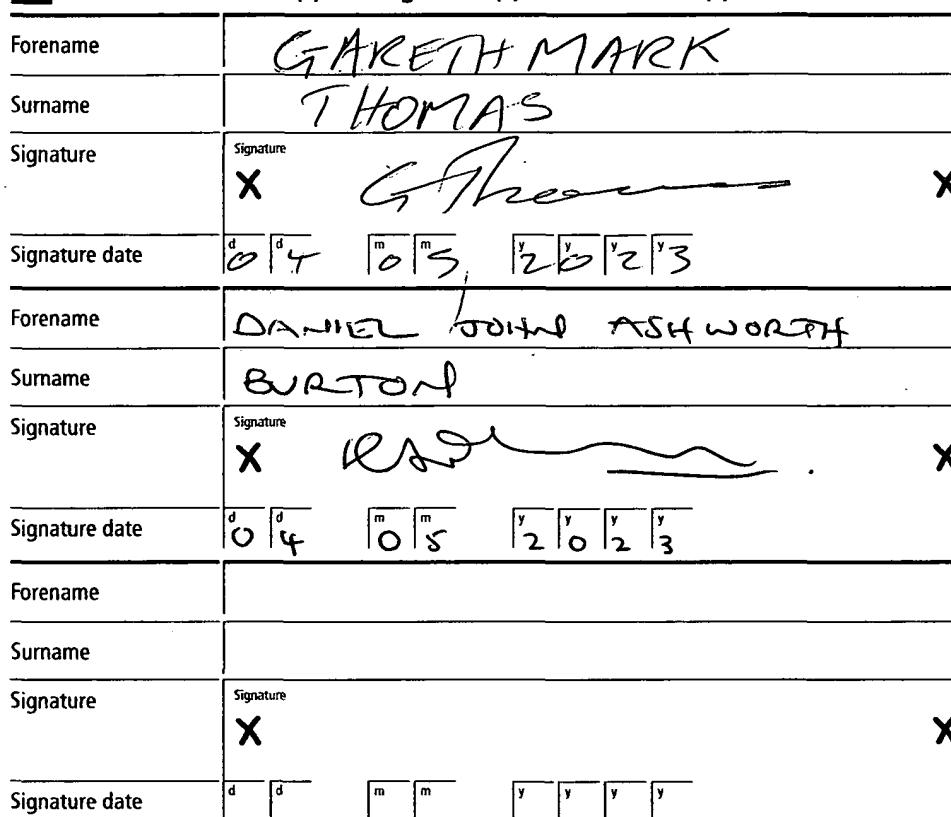 Forename GARETH MARK
Surname THOMAS
Signature Signature X G Thomas X
Signature date d 0 d 4 m 0 m 5 y 2 y 0 y 2 y 3
Forename DANIEL JOHN ASHWORTH
Surname BURTON
Signature Signature X X
Signature date d 0 d 4 m 0 m 5 y 2 y 0 y 2 y 3
Forename
Surname
Signature Signature X X
Signature date d d m m y y y y